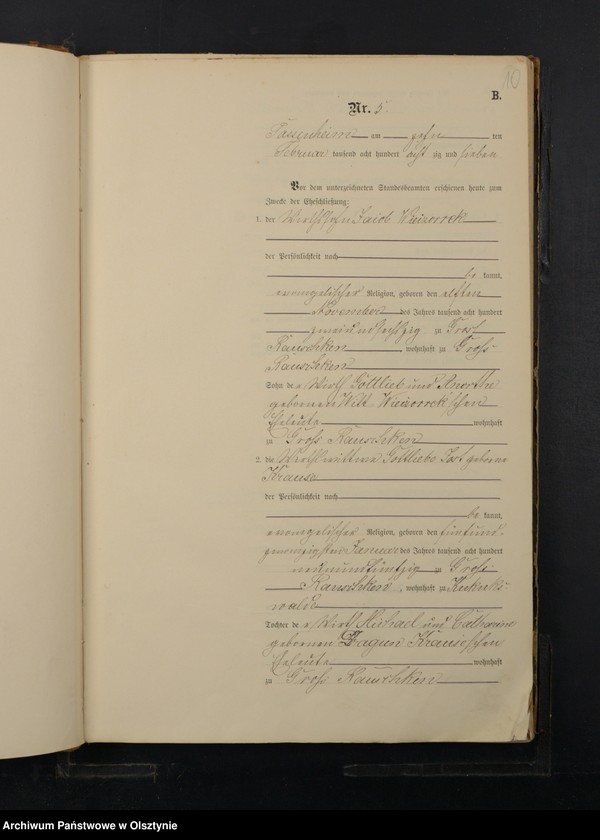 10
B.
Nr. 5.
am zehn ten
Februar tausend acht hundert acht zig und sieben
Vor dem unterzeichneten Standesbeamten erschienen heute zum
Zwecke der Eheschließung:
1. der Wirthssohn Jacob Wieczorrek
der Persönlichkeit nach
be kannt,
evangelischer Religion, geboren den elften
November des Jahres tausend acht hundert
zweiundsechszig zu Gross
Rauschken, wohnhaft zu Gross
Rauschken
Sohn der Wirth Gottlieb und
gebornen Wieczorrek'schen
Eheleute wohnhaft
zu Gross Rauschken
2. die Wirthswittwe Gottliebe Jost geborne
Krause
der Persönlichkeit nach
be kannt,
evangelischer Religion, geboren den fünfund-
zwanzigsten Januar des Jahres tausend acht hundert
neunundfünfzig zu Gross
Rauschken, wohnhaft zu Kukuks-
walde
Tochter der Wirth Michael und Catharine
gebornen Krause'schen
Eheleute wohnhaft
zu Gross Rauschken
Archiwum Państwowe w Olsztynie